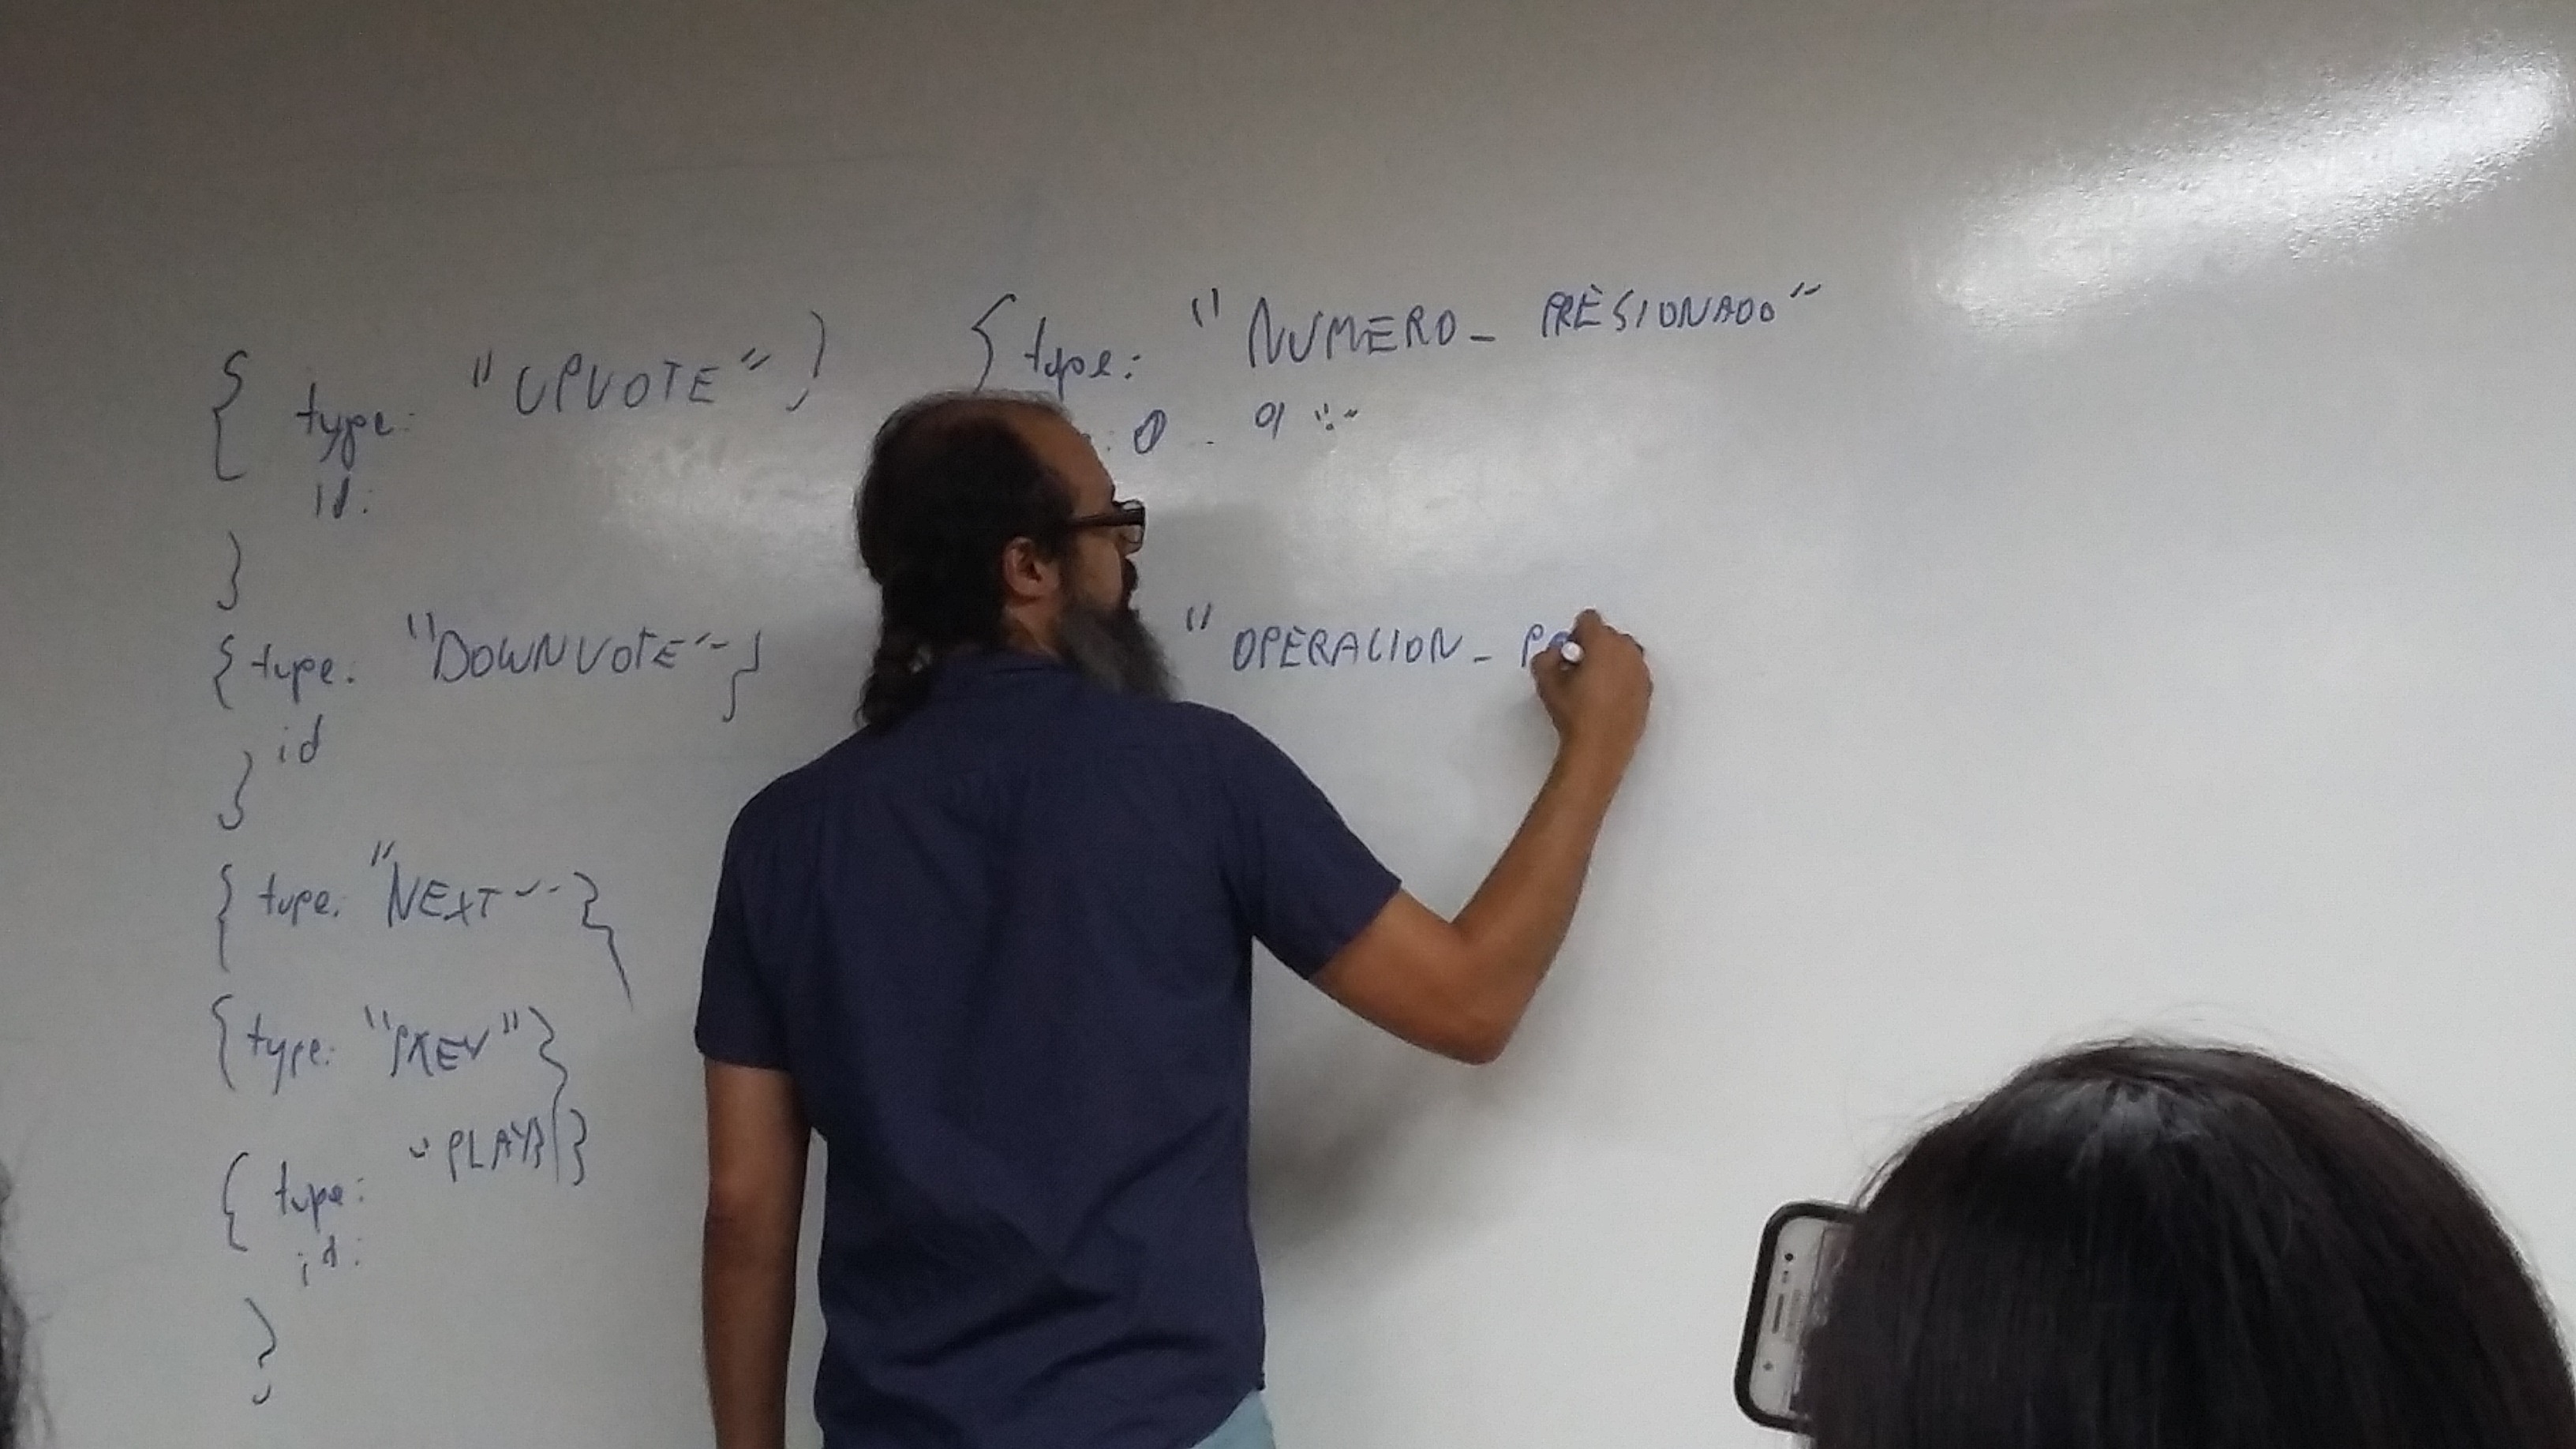 { type: "UPVOTE" }
id:
}
{ type: "DOWNVOTE" }
id
}
{ type: "NEXT" }
{ type: "PREV" }
{ type: "PLAY" }
id:
}
{ type: "NUMERO_PRESIONADO"
: 0 - 9
"OPERACION_